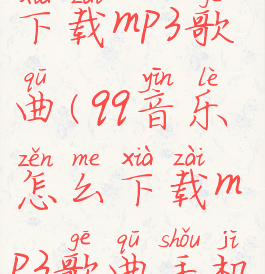 xià zài gē
下载mp3歌
qū yīn lè
曲(99音乐
zěn me xià zài
怎么下载m
gē qū shǒu jī
p3歌曲手机